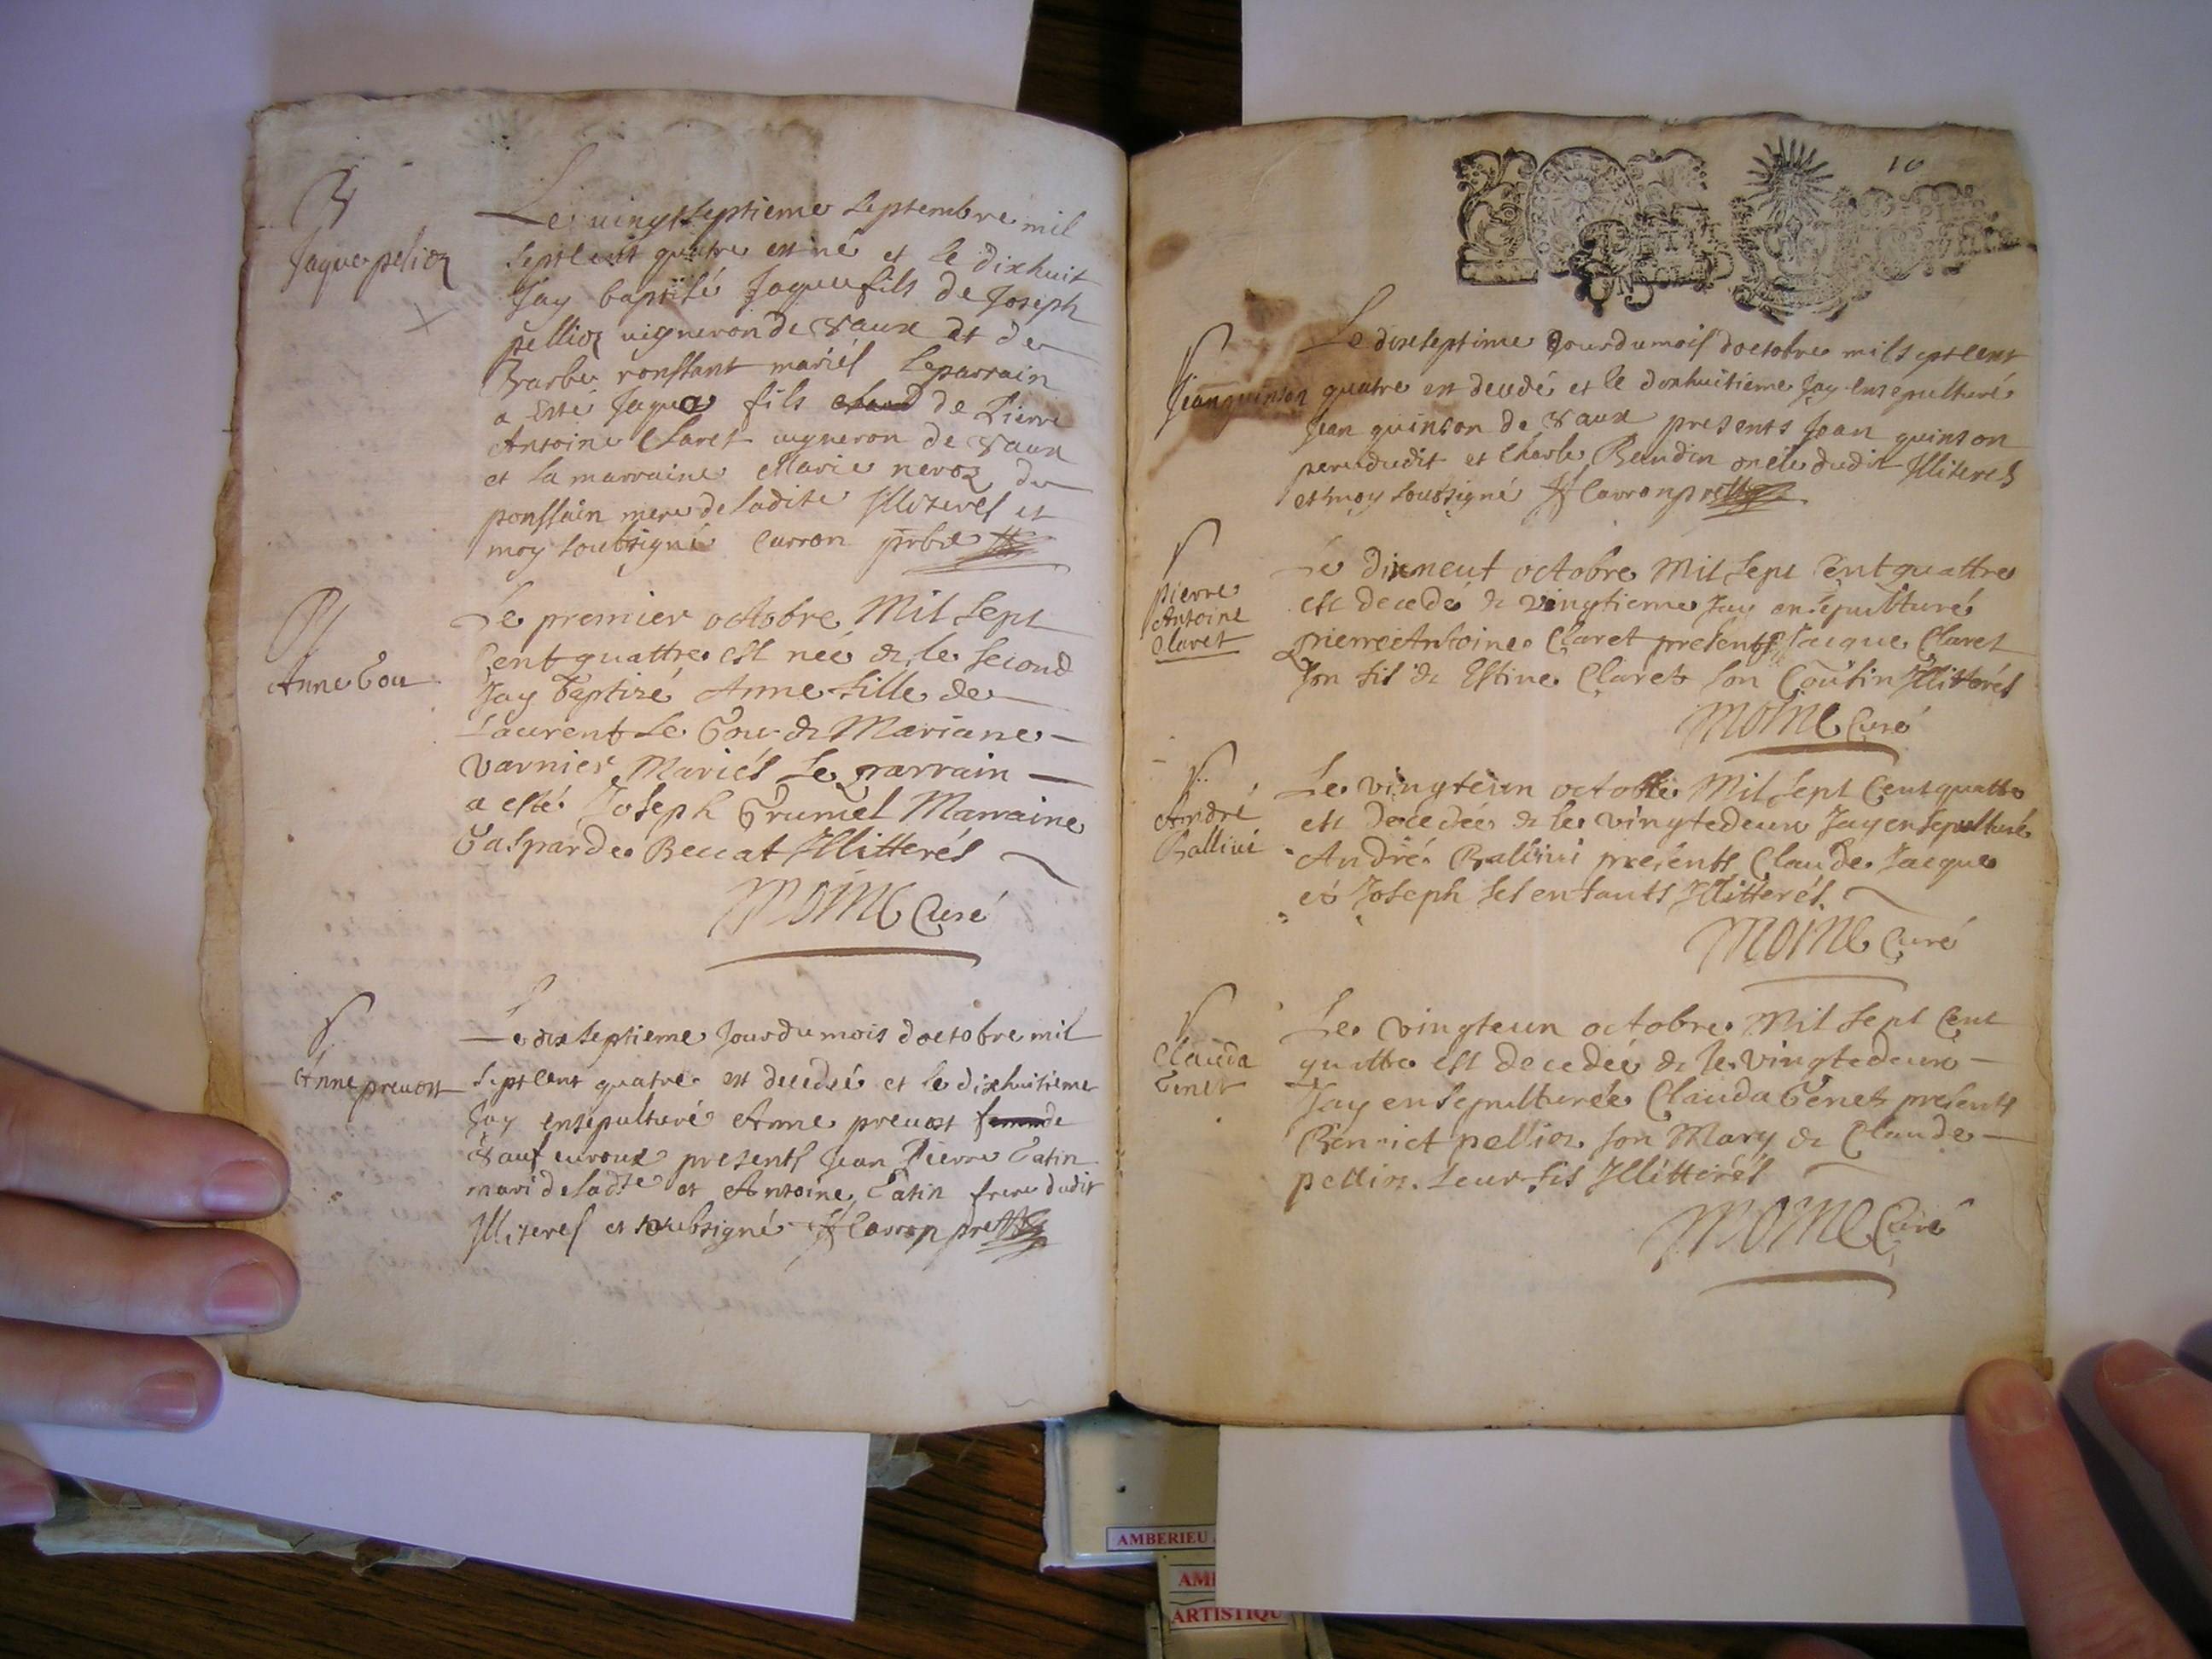 B
Jaque pelioz
Le vingtseptieme septembre mil
sept cent quatre est né et le dixhuit
Jay baptisé Jaque fils de Joseph
pellioz vigneron de Vaux et de
Barbe ronstant mariés Le parrain
a esté Jaque fils de Pierre
Antoine Claret vigneron de Vaux
et la marraine Marie neroz de
ponssain mere de ladite Illiterés et
moy soubsigné Carron prbre
B
Anne Gou
Le premier octobre Mil Sept
Cent quattre est neé & le second
Jay Baptizé Anne fille de
Laurent Le Gou & Mariane
Varnier Mariés Le parrain
a esté Joseph Grumel Marraine
Gasparde Beccat Illitterés
MOINE Curé
S
Anne preuost
Le dixseptieme Jour du mois doctobre mil
sept cent quatre est decedeé et le dixhuitieme
Jay ensepulturé Anne preuost de
Vaux presents Jean Pierre Tatin
mari de ladte et Antoine Tatin frere dudit
Illiteres et soubsigné Carron pre
10
S
Jean quinson
Le dixseptime Jour du mois doctobre mil sept cent
quatre est decedé et le dixhuitiéme Jay ensepulturé
Jean quinson de Vaux presents Jean quinson
pere dudit et Charle Baudin oncle dudit Illiterés
et moy soubsigné Carron pre
S
pierre
Antoine
Claret
Le dixneuf octobre Mil Sept Cent quattre
est decedé & vingtieme Jay ensepulturé
pierre Antoine Claret presents Jacque Claret
son fis & Estine Claret son Cousin Illitterés
MOINE Curé
S
André
Ballivi
Le vingteun octobre Mil Sept Cent quattre
est decedée & le vingtedeux Jay ensepulturé
André Ballivi presents Claude Jacque
et Joseph ses enfants Illitterés
MOINE Curé
S
Clauda
Genet
Le vingteun octobre Mil Sept Cent
quattre est decedeé & le vingtedeux
Jay ensepulturée Clauda Genet presents
Benoict pellioz son Mary & Claude
pellioz leur fis Illitterés
MOINE Curé
AMBERIEU
ARTISTIQU